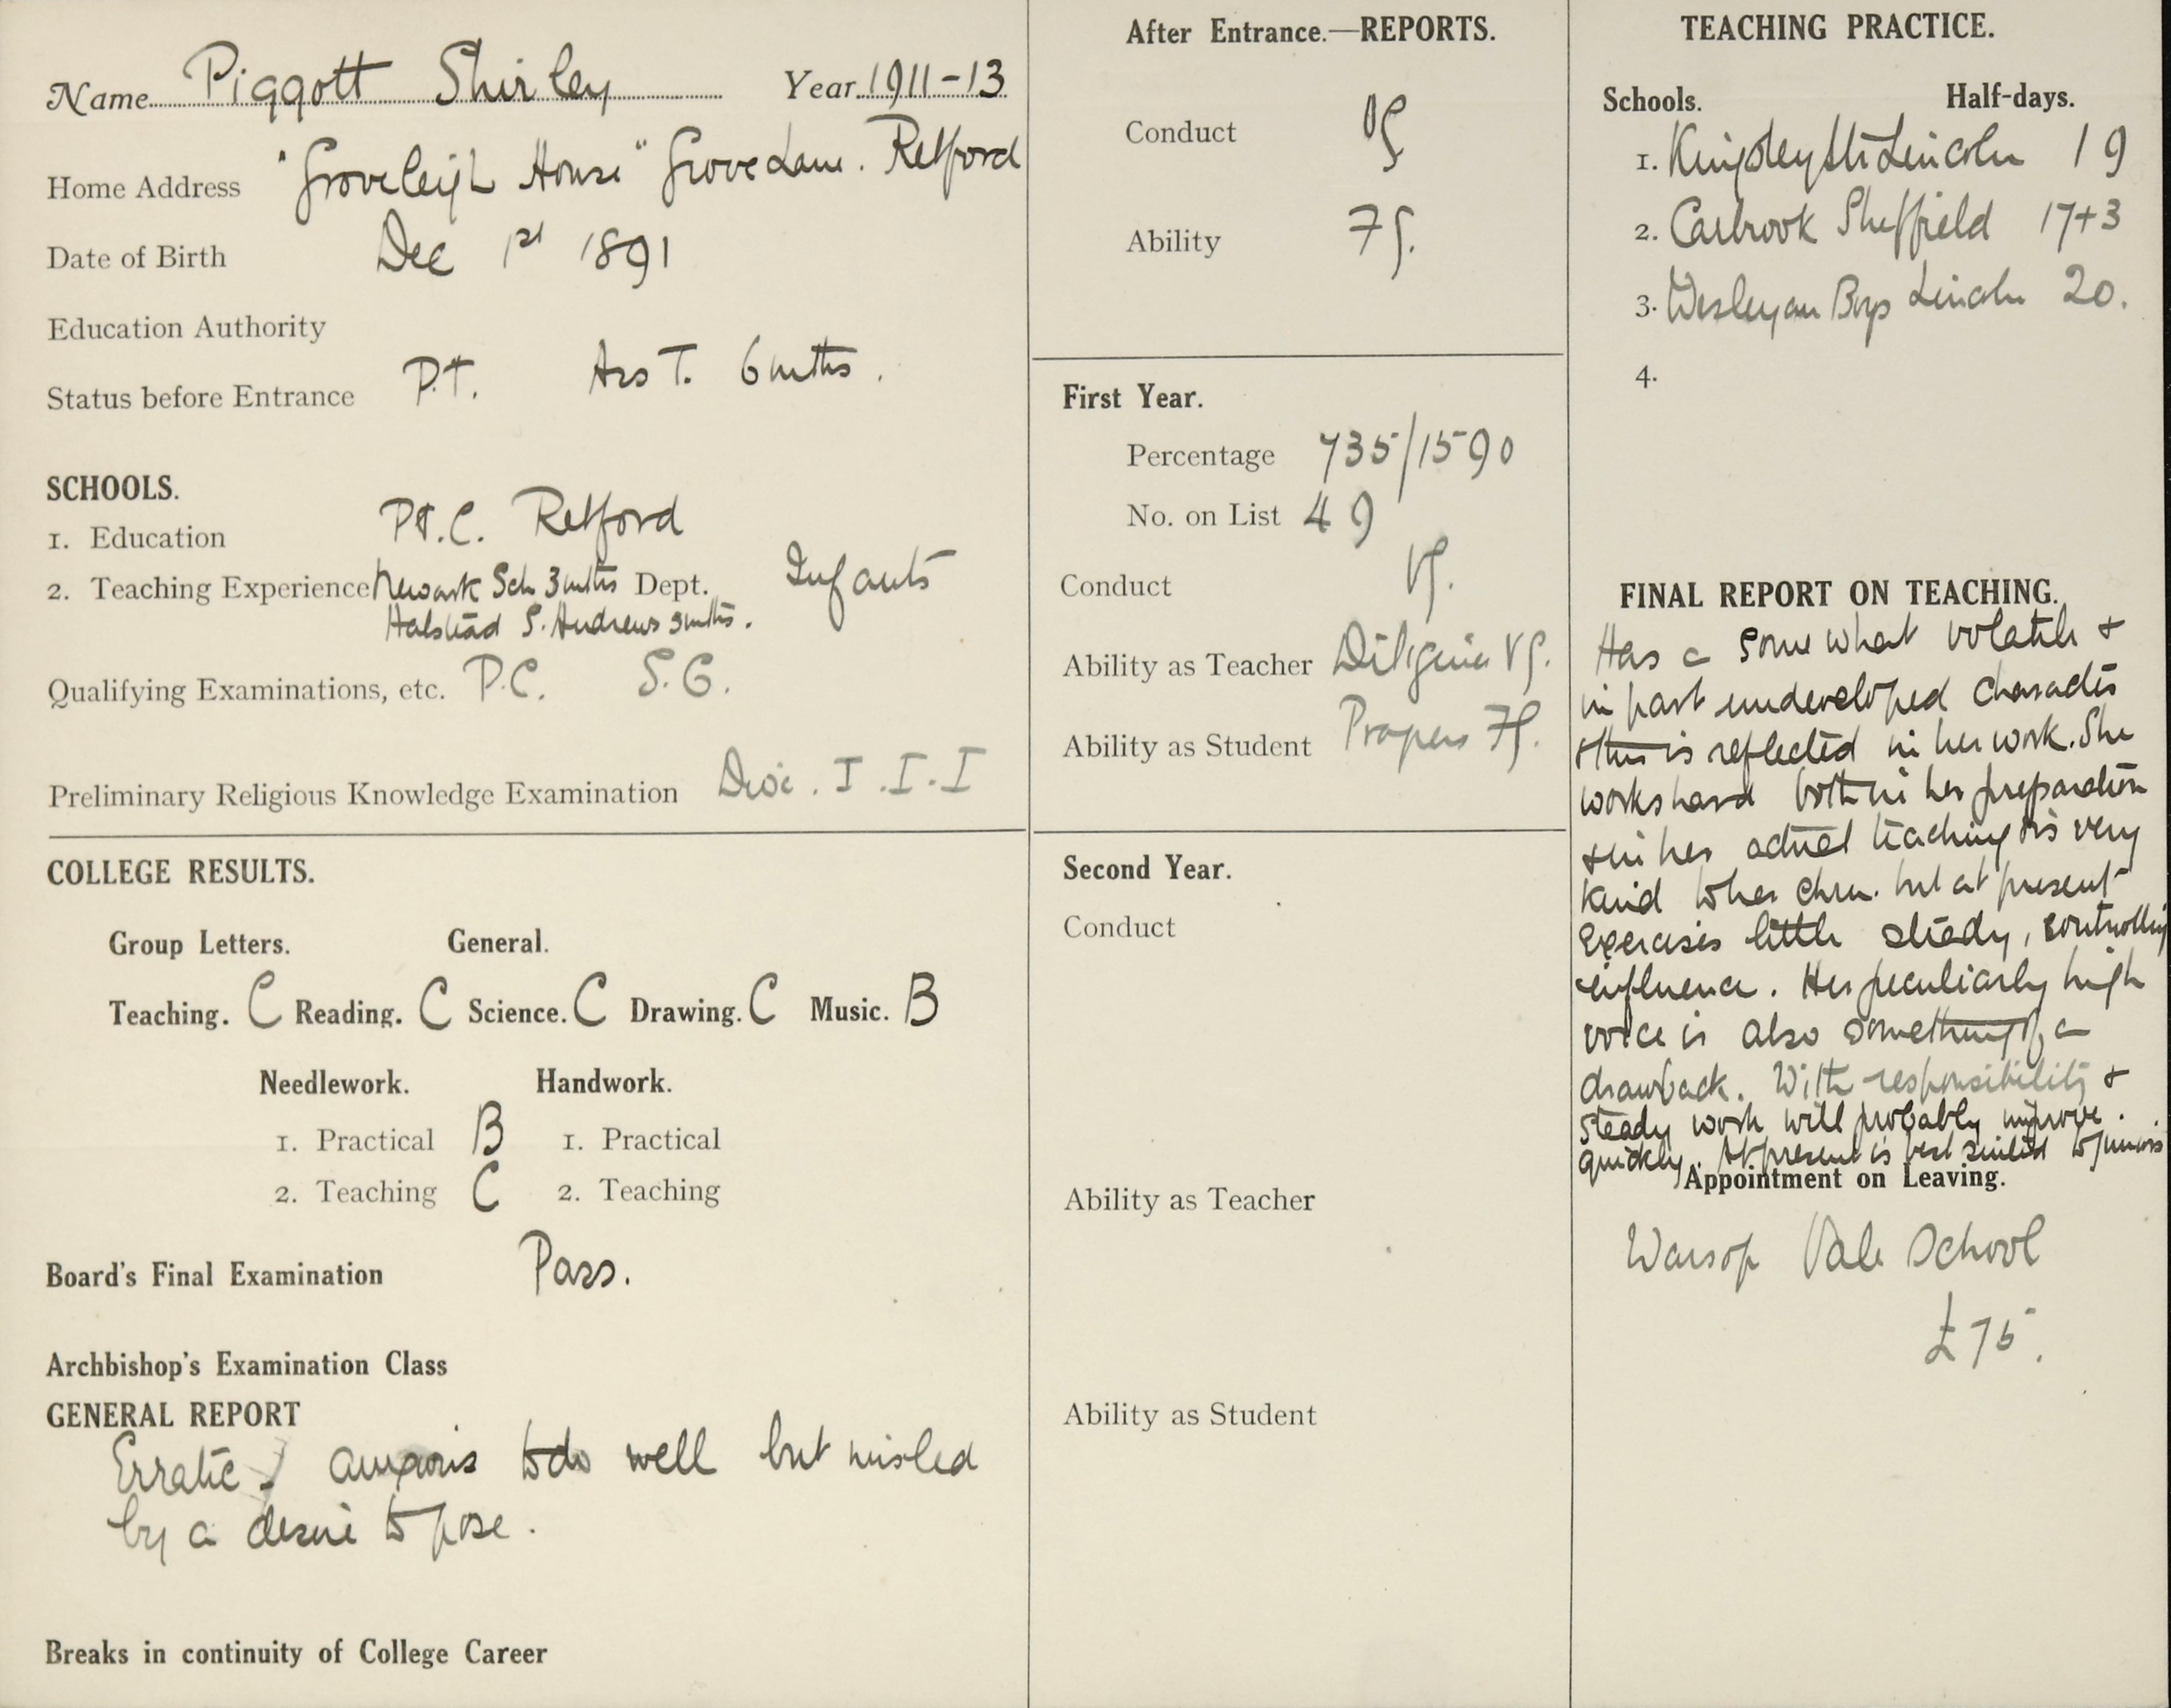 Name Piggott Shirley Year 1911-13
Home Address "Groveleigh House" Grove Lane. Retford
Date of Birth Dec 1st 1891
Education Authority
Status before Entrance P.T. Ass T. 6 mths.
SCHOOLS.
1. Education P.T.C. Retford
2. Teaching Experience Newark Sch 3 mths Dept. Infants
Halstead S. Andrews 3 mths.
Qualifying Examinations, etc. P.C. S.G.
Preliminary Religious Knowledge Examination Dioc. I.I.I
COLLEGE RESULTS.
Group Letters. General.
Teaching. C Reading. C Science. C Drawing. C Music. B
Needlework. Handwork.
1. Practical B 1. Practical
2. Teaching C 2. Teaching
Board's Final Examination Pass.
Archbishop's Examination Class
GENERAL REPORT
Erratic. anxious to do well but misled
by a desire to pose.
Breaks in continuity of College Career
After Entrance.—REPORTS.
Conduct
Ability FG.
First Year.
Percentage 735/1590
No. on List 49
Conduct VG.
Ability as Teacher Diligence VG.
Ability as Student Progress FG.
Second Year.
Conduct
Ability as Teacher
Ability as Student
TEACHING PRACTICE.
Schools. Half-days.
1. Kingsley St Lincoln 19
2. Carbrook Sheffield 17+3
3. Wesleyan Boys Lincoln 20.
4.
FINAL REPORT ON TEACHING.
Has a somewhat volatile &
in part undeveloped character
& this is reflected in her work. She
works hard both in her preparation
& in her actual teaching & is very
kind to her chn. but at present
exercises little steady, controlling
influence. Her peculiarly high
voice is also something of a
drawback. With responsibility &
steady work will probably improve
quickly. At present is best suited to juniors
Appointment on Leaving.
Warsop Vale School
£75.